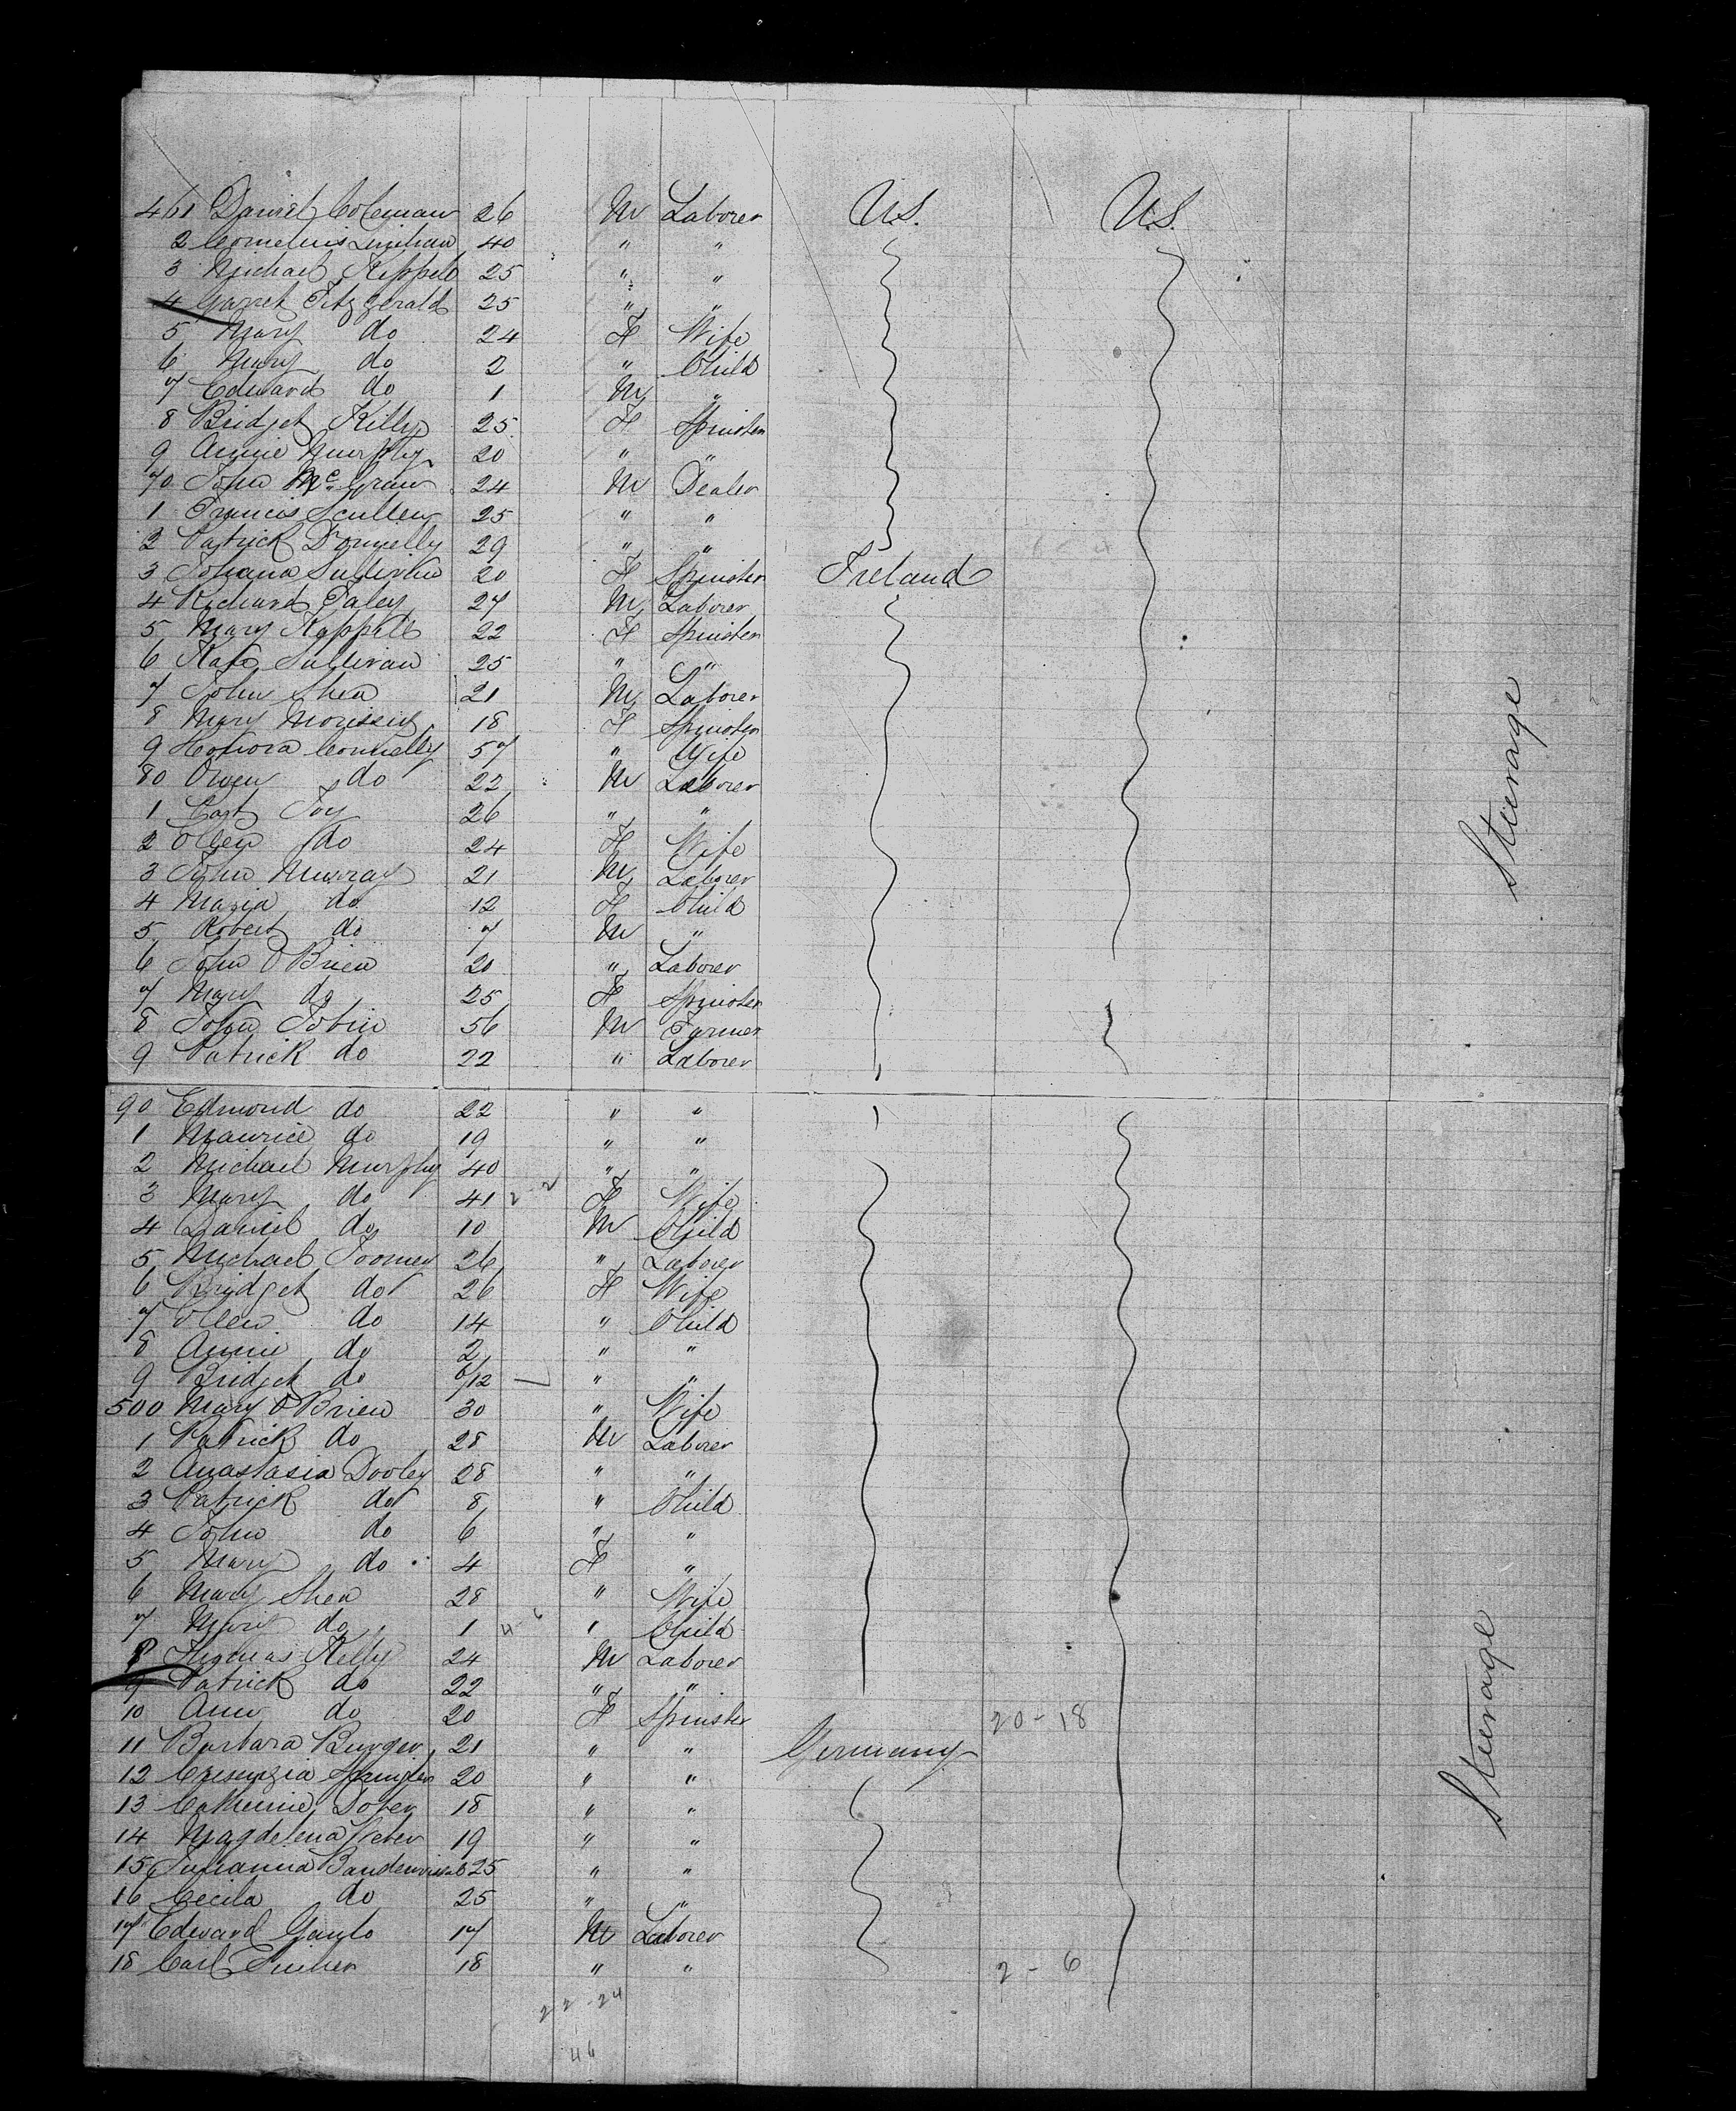 461 Daniel Coleman 26 M Laborer U.S. U.S.
2 Cornelius Linehan 40 " "
3 Michael Keppele 25 " "
4 Garret Fitzgerald 25 " "
5 Mary do 24 F Wife
6 Mary do 2 " Child
7 Edward do 1 M "
8 Bridget Killy 25 F Spinster
9 Annie Murphy 20 " "
70 John McGraw 24 M Dealer
1 Francis Scullen 25 " "
2 Patrick Donnelly 29 " "
3 Johana Sullivan 20 F Spinster Ireland
4 Richard Daley 27 M Laborer
5 Mary Kappele 22 F Spinster
6 Kate Sullivan 25 " "
7 John Shea 21 M Laborer
8 Mary Morissey 18 F Spinster
9 Honora Connelly 57 " Wife
80 Owen do 22 M Laborer
1 Joy 26 " "
2 Ellen do 24 F Wife
3 John Murray 21 M Laborer
4 Maria do 12 F Child
5 Robert do 7 M "
6 John O Brien 20 " Laborer
7 Mary do 25 F Spinster
8 John Tobin 56 M Farmer
9 Patrick do 22 " Laborer
Steerage
90 Edmond do 22 " "
1 Maurice do 19 " "
2 Michael Murphy 40 " "
3 Mary do 41 2-2 F Wife
4 Daniel do 10 M Child
5 Michael Toomey 26 " Laborer
6 Bridget do 26 F Wife
7 Ellen do 14 " Child
8 Annie do 2 " "
9 Bridget do 6/12 " "
500 Mary O Brien 30 " Wife
1 Patrick do 28 M Laborer
2 Anastasia Dooley 28 " "
3 Patrick do 8 " Child
4 John do 6 " "
5 Mary do 4 F "
6 Mary Shea 28 " Wife
7 Mary do 1 " Child
8 Thomas Kelly 24 M Laborer
9 Patrick do 22 " "
10 Ann do 20 F Spinster 20-18
11 Barbara Burger 21 " " Germany
12 Cresenzia Springler 20 " "
13 Catherine 18 " "
14 Magdelena 19 " "
15 Julianna 25 " "
16 Cecila do 25 " "
17 Edward 17 M Laborer
18 Carl 18 " " 2-6
22-24
46
Steerage